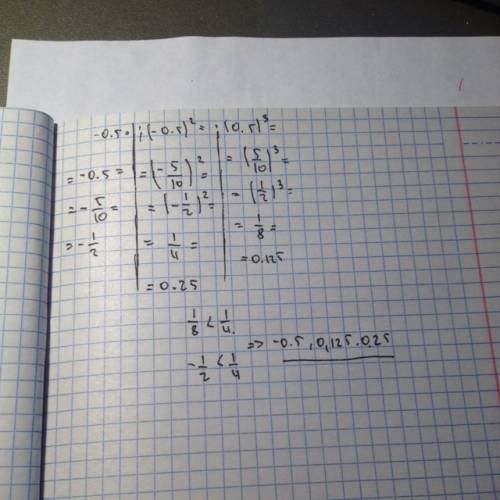 -0.5 = ; (-0.5)² = ; (0.5)³ =
= -0.5 = = (-5/10)² = = (5/10)³ =
= -5/10 = = (-1/2)² = = (1/2)³ =
= -1/2 = 1/4 = = 1/8 =
= 0.25 = 0.125
1/8 < 1/4
-1/2 < 1/4 => -0.5, 0,125. 0.25